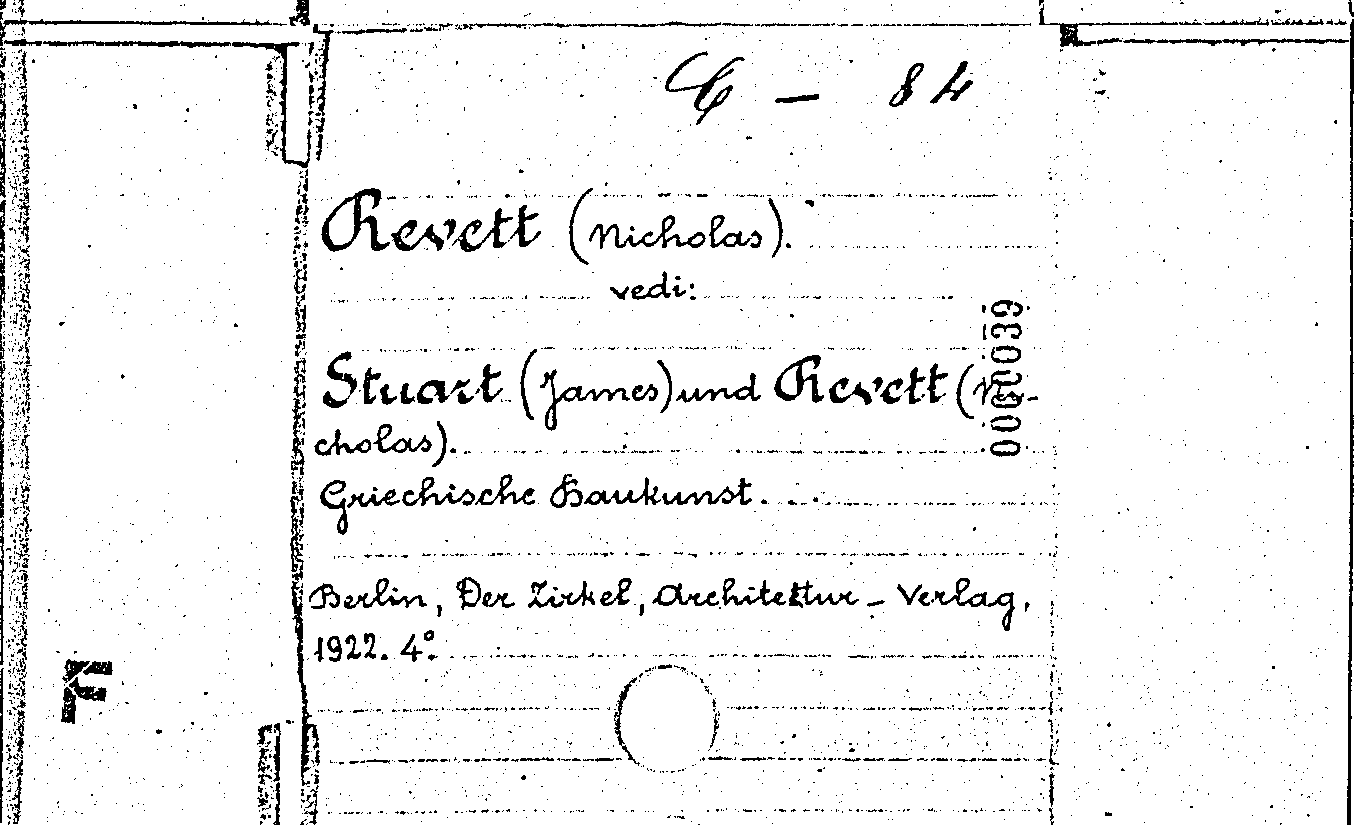 C – 84
Revett (Nicholas).
vedi:
Stuart (James) und Revett (Ni-
cholas).
Griechische Baukunst. . .
Berlin, Der Zirkel, Architektur – Verlag,
1922. 4°.
0000039
F